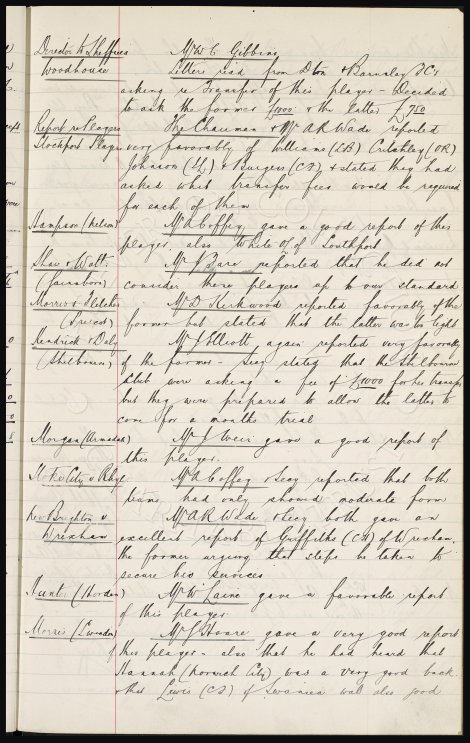 Director to Sheffries Mr W C Gibbins
Woodhouse Letters read from Dton & Barnsley FCs
asking re transfer of this player - Decided
to ask the former £1000 & the latter £750
Report re Players The Chairman & Mr A R Wade reported
Stockport Player very favorably of Williams (LB) Critchley (OR)
Johnson (LL) & Burgess (CF), & stated they had
asked what transfer fees would be required
for each of them
Hampson (Nelson) Mr A Coffey gave a good report of this
player, also White of Southport
Shaw & Watt Mr J Bare reported that he did not
(Gainsboro) consider these players up to our standard
Morris & Fletcher Mr D Kirkwood reported favorably of the
former but stated that the latter was too light
Kendrick & Daly Mr J Elliott again reported very favorably
(Shelbourne) of the former - Secy stated that the Shelbourne
Club were asking a fee of £1000 for his transfer
but they were prepared to allow the latter to
come for a months trial
Morgan (Armadale) Mr J Weir gave a good report of
this player.
Stoke City v Rhyl Mr A Coffey & Secy reported that both
teams had only showed moderate form
New Brighton v Mr A R Wade & Secy both gave an
Wrexham excellent report of Griffiths (CH) of Wrexham,
the former urging that steps be taken to
secure his services
Hunter (Horden) Mr W Laine gave a favorable report
of this player.
Morris (Swansea) Mr J Hoare gave a very good report
of this player - also that he had heard that
Hannah (Norwich City) was a very good back
& that Lewis (CF) of Swansea was also good